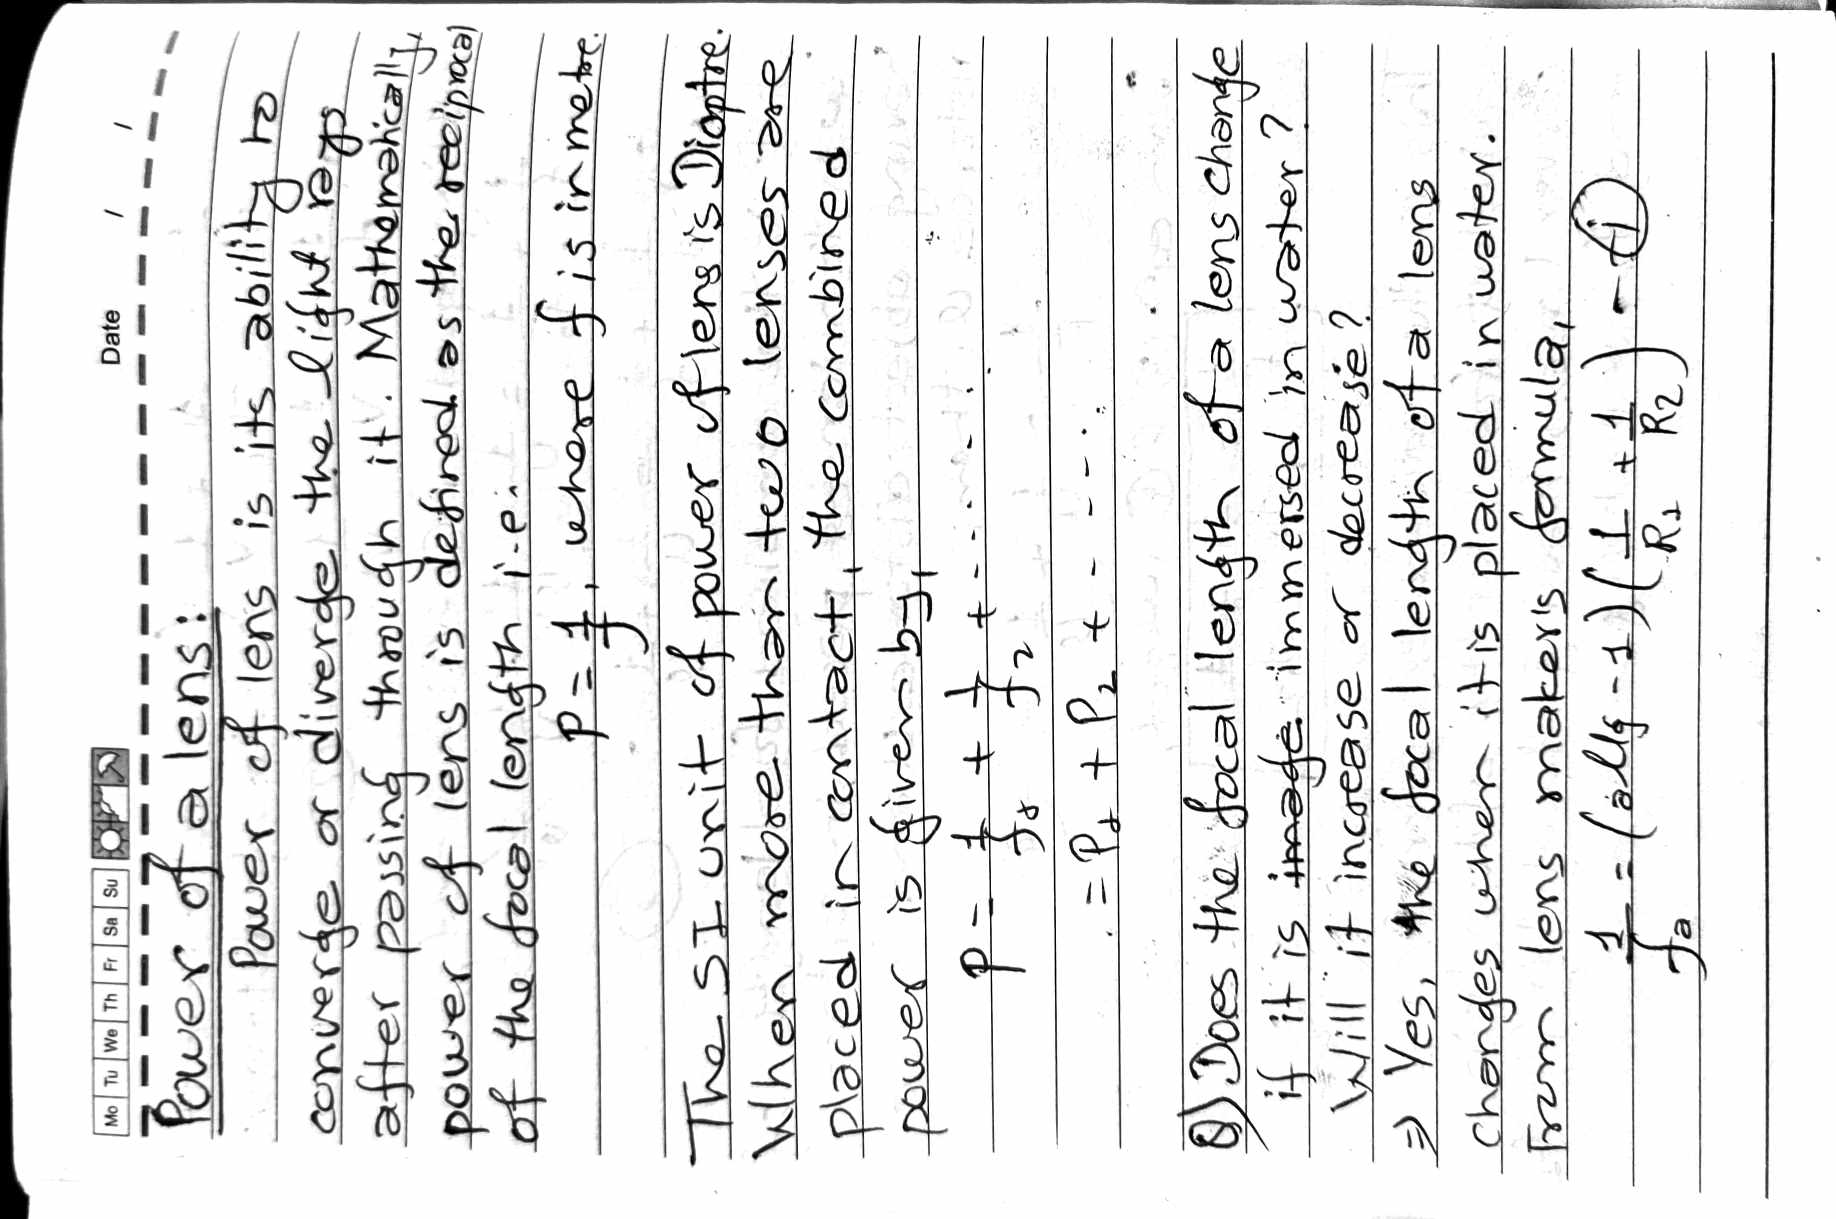 Mo Tu We Th Fr Sa Su Date / /
Power of a lens:
Power of lens is its ability to
converge or diverge the light rays
after passing through it. Mathematically,
power of lens is defined as the reciprocal
of the focal length i.e.
P = 1/f, where f is in metre.
The SI unit of power of lens is Dioptre.
When more than two lenses are
placed in contact, the combined
power is given by,
P = 1/f₁ + 1/f₂ + - - - - -
= P₁ + P₂ + - - - -
Q) Does the focal length of a lens change
if it is image immersed in water?
Will it increase or decrease?
⇒ Yes, the focal length of a lens
changes when it is placed in water.
From lens maker's formula,
1/fa = (aμg - 1)(1/R₁ + 1/R₂) - (i)